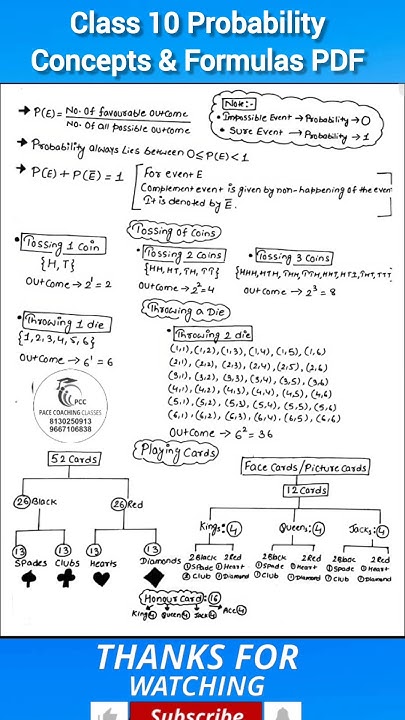 Class 10 Probability
Concepts & Formulas PDF
→ P(E) = No. Of favourable outcome
No. Of all possible outcome
Note:-
• Impossible Event → Probability → 0
• Sure Event → Probability → 1
→ Probability always Lies between 0 ≤ P(E) < 1
→ P(E) + P(E̅) = 1
For event E
Complement event is given by non-happening of the even
It is denoted by E̅.
Tossing of Coins
• Tossing 1 Coin
{H, T}
Outcome → 2¹ = 2
• Tossing 2 coins
{HH, HT, TH, TT}
Outcome → 2² = 4
• Tossing 3 Coins
Outcome → 2³ = 8
Throwing a Die
• Throwing 1 die
{1, 2, 3, 4, 5, 6}
Outcome → 6¹ = 6
• Throwing 2 die
(1,1), (1,2), (1,3), (1,4), (1,5), (1,6)
(2,1), (2,2), (2,3), (2,4), (2,5), (2,6)
(3,1), (3,2), (3,3), (3,4), (3,5), (3,6)
(4,1), (4,2), (4,3), (4,4), (4,5), (4,6)
(5,1), (5,2), (5,3), (5,4), (5,5), (5,6)
(6,1), (6,2), (6,3), (6,4), (6,5), (6,6)
Outcome → 6² = 36
PCC
PACE COACHING CLASSES
8130250913
9667106838
Playing Cards
52 Cards
26 Black
26 Red
13 Spades
13 Clubs
13 Hearts
13 Diamonds
Face Cards/Picture Cards
12 Cards
Kings: 4
Queens: 4
Jacks: 4
2 Black 2 Red 2 Black 2 Red 2 Black 2 Red
① Spade ① Heart ① Spade ① Heart ① Spade ① Heart
Club ① Diamond ① Club ① Diamond ① Club ① Diamond
Honour Card: 16
King 4 Queen 4 Jack 4 Ace 4
THANKS FOR
WATCHING
Subscribe